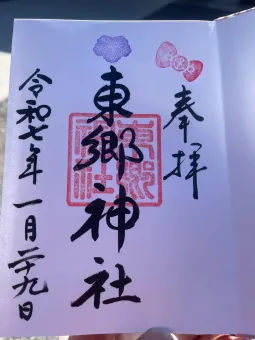 奉拝
東郷神社
東郷神社
令和七年 一月二十九日